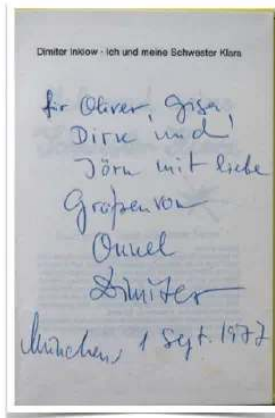 Dimiter Inkiow · Ich und meine Schwester Klara
für Oliver, Gisa,
Dirk und
Jörn mit liebe
Grüßen von
Onkel
Dimiter
München, 1 Sept. 1977